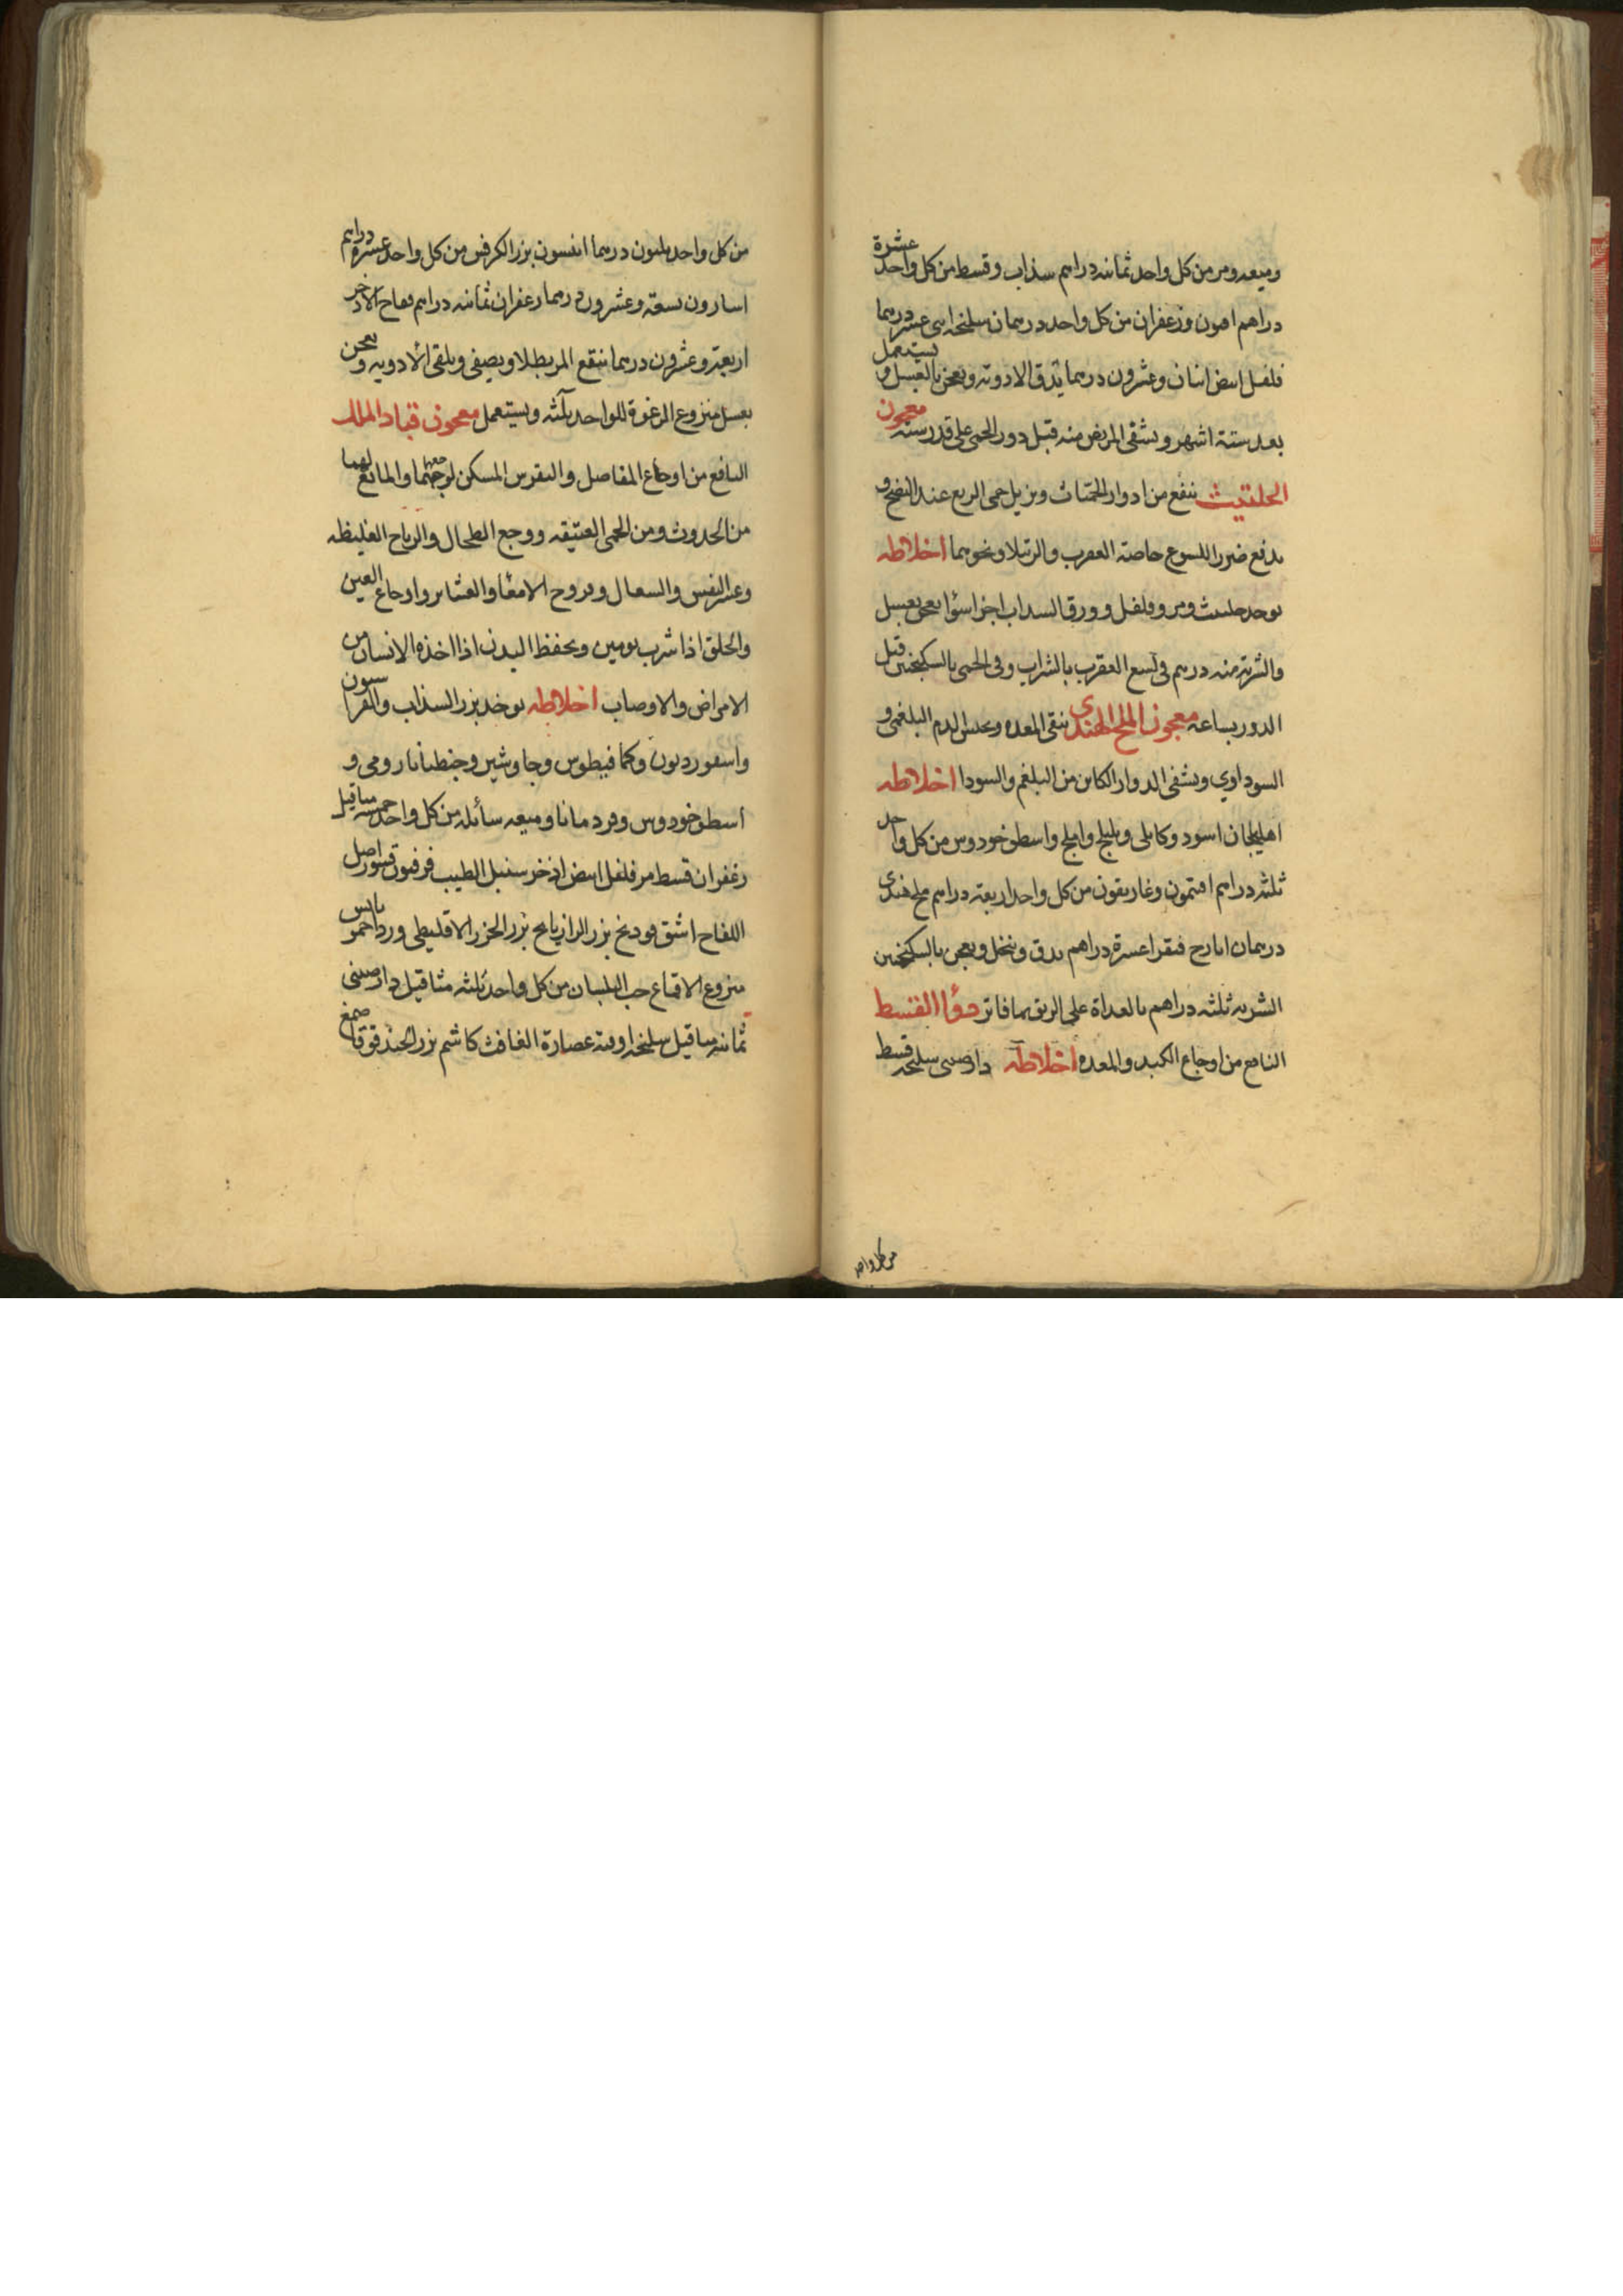 وميعه ومر من كل واحد ثمانيه دراهم سذاب وقسط من كل واحد عشرة
دراهم افيون وزعفران من كل واحد درهمان سليخه اثنى عشر درهما
فلفل ابيض اثنان وعشرون درهما يدق الادوية ويعجن بالعسل ويستعمل
بعد ستة اشهر ويسقى المريض منه قبل دور الحمى على قدر سنه معجون
الحلتيت ينفع من ادوار الحميات ويزيل حمى الربع عند النضج و
يدفع ضرر اللسوع خاصة العقرب والرتيلا ونحوهما اخلاطه
يوخذ حلتيت ومر وفلفل وورق السداب اجزا سوا يعجن بعسل
والشربة منه درهم في لسع العقرب بالشراب وفي الحمى بالسكنجبين قبل
الدور بساعه معجون الملح الهندى ينقى المعده ويحلل الدم البلغمي و
السوداوي ويشفى الدوار الكاين من البلغم والسودا اخلاطه
اهليلجان اسود وكابلى وبليلج واملج واسطوخودوس من كل واحد
ثلثه دراهم افتيمون وغاريقون من كل واحد اربعة دراهم ملح هندى
درهمان ايارج فيقرا عشرة دراهم يدق وينخل ويعجن بالسكنجبين
الشربه ثلثه دراهم بالغداة على الريق بما فاتر دوا القسط
النافع من اوجاع الكبد والمعده اخلاطه دارصينى سليخه قسط
من كل واحد
من كل واحد ثلثون درهما انيسون بزر الكرفس من كل واحد عشره دراهم
اسارون تسعة وعشرون درهما زعفران ثمانيه دراهم فقاح الاذخر
اربعة وعشرون درهما ينقع المر بطلا ويصفى ويلقى الادويه ويعجن
بعسل منزوع الرغوة للواحد ثلثه ويستعمل معجون قباد الملك
النافع من اوجاع المفاصل والنقرس المسكن لوجعهما والمانع لهما
من الحدوث ومن الحمى العتيقه ووجع الطحال والرياح الغليظه
وعسر النفس والسعال وقروح الامعا والغشا واوجاع العين
والحلق اذا شرب يومين ويحفظ البدن اذا اخذه الانسان من
الامراض والاوصاب اخلاطه يوخذ بزر السذاب والفراسيون
واسقورديون وكمافيطوس وجاوشير وجنطيانا رومى و
اسطوخودوس وقردمانا وميعه سائله من كل واحد خمسه مثاقيل
زعفران قسط مر فلفل ابيض اذخر سنبل الطيب فرفيون قشور اصل
اللفاح اشق فودنج بزر الرازيانج بزر الجزر الاقليطى ورد احمر يابس
منزوع الاقماع حب البلسان من كل واحد ثلثه مثاقيل دارصينى
ثمانيه مثاقيل سليخه اوقيه عصارة الغافث كاشم بزر الحندقوقا صمغ